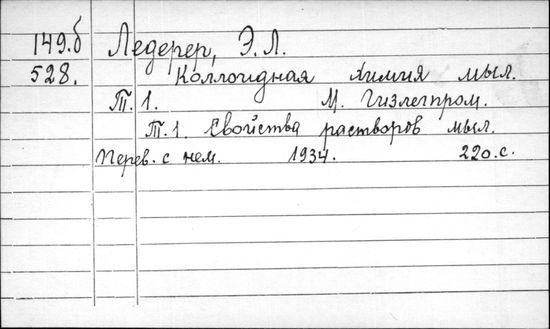 149.б Ледерер, Э.Л.
528. Коллоидная химия мыл.
Т. 1. М. Гизлегпром.
Т. 1. Свойства растворов мыл.
Перев. с нем. 1934. 220.с.